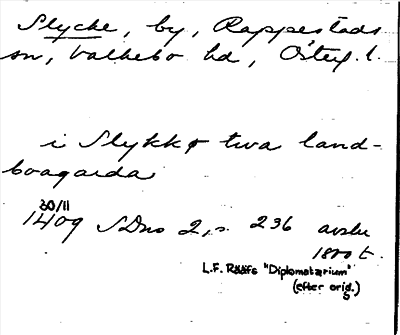 Slycke, by, Rappestads
sn, Valkebo hd, Östergl. l.
i Slykkø twa land-
boagarda
30/11
1409 SDns 2, s. 236 avskr
1800 t.
L.F. Rääfs "Diplomatarium"
(efter orig.)